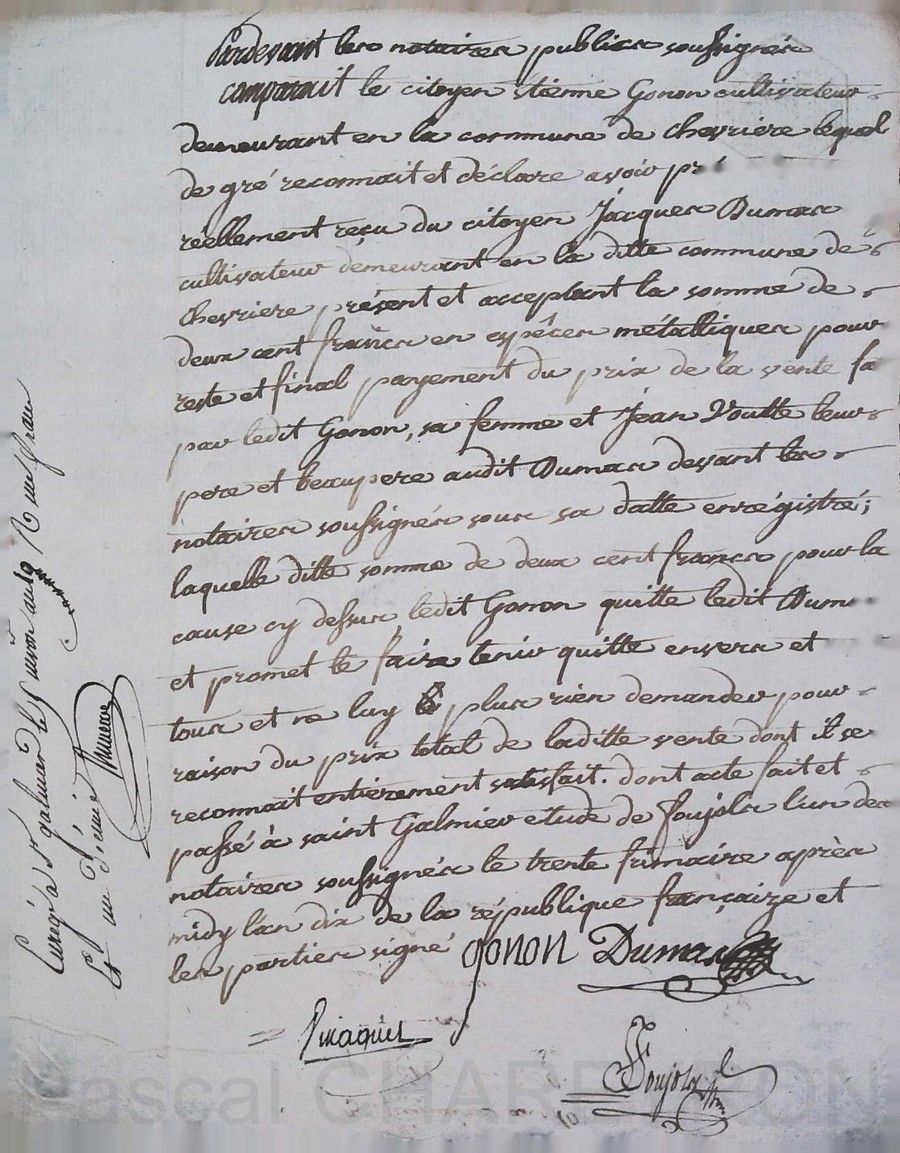 Pardevant les notaires publics soussignés
comparait le citoyen etienne Gonon cultivateur
demeurant en la commune de chevriere lequel
de gré reconnait et déclare avoir
réellement reçu du citoyen Jacques Dumas
cultivateur demeurant en la ditte commune de
chevriere présent et acceptant la somme de
deux cent francs en espêces métalliques pour
reste et final payement du prix de la vente
par ledit Gonon, sa femme et Jean Voutte leur
pere et beaupere audit Dumas devant les
notaires soussignés sous sa datte enregistré;
laquelle ditte somme de deux cent francs pour la
cause cy dessus ledit Gonon quitte ledit
et promet le faire tenir quitte envers et
tous et ne luy plus rien demander pour
raison du prix total de laditte vente dont il se
reconnait entierement satisfait. dont acte fait et
passé à saint Galmier etude de Foujols l'un des
notaires soussignés le trente frimaire après
midy l'an dix de la république françaize et
les parties signé
Gonon Dumas
Foujols
Enreg. à St galmier le nivose an 10
un
Pascal CHAREYRON